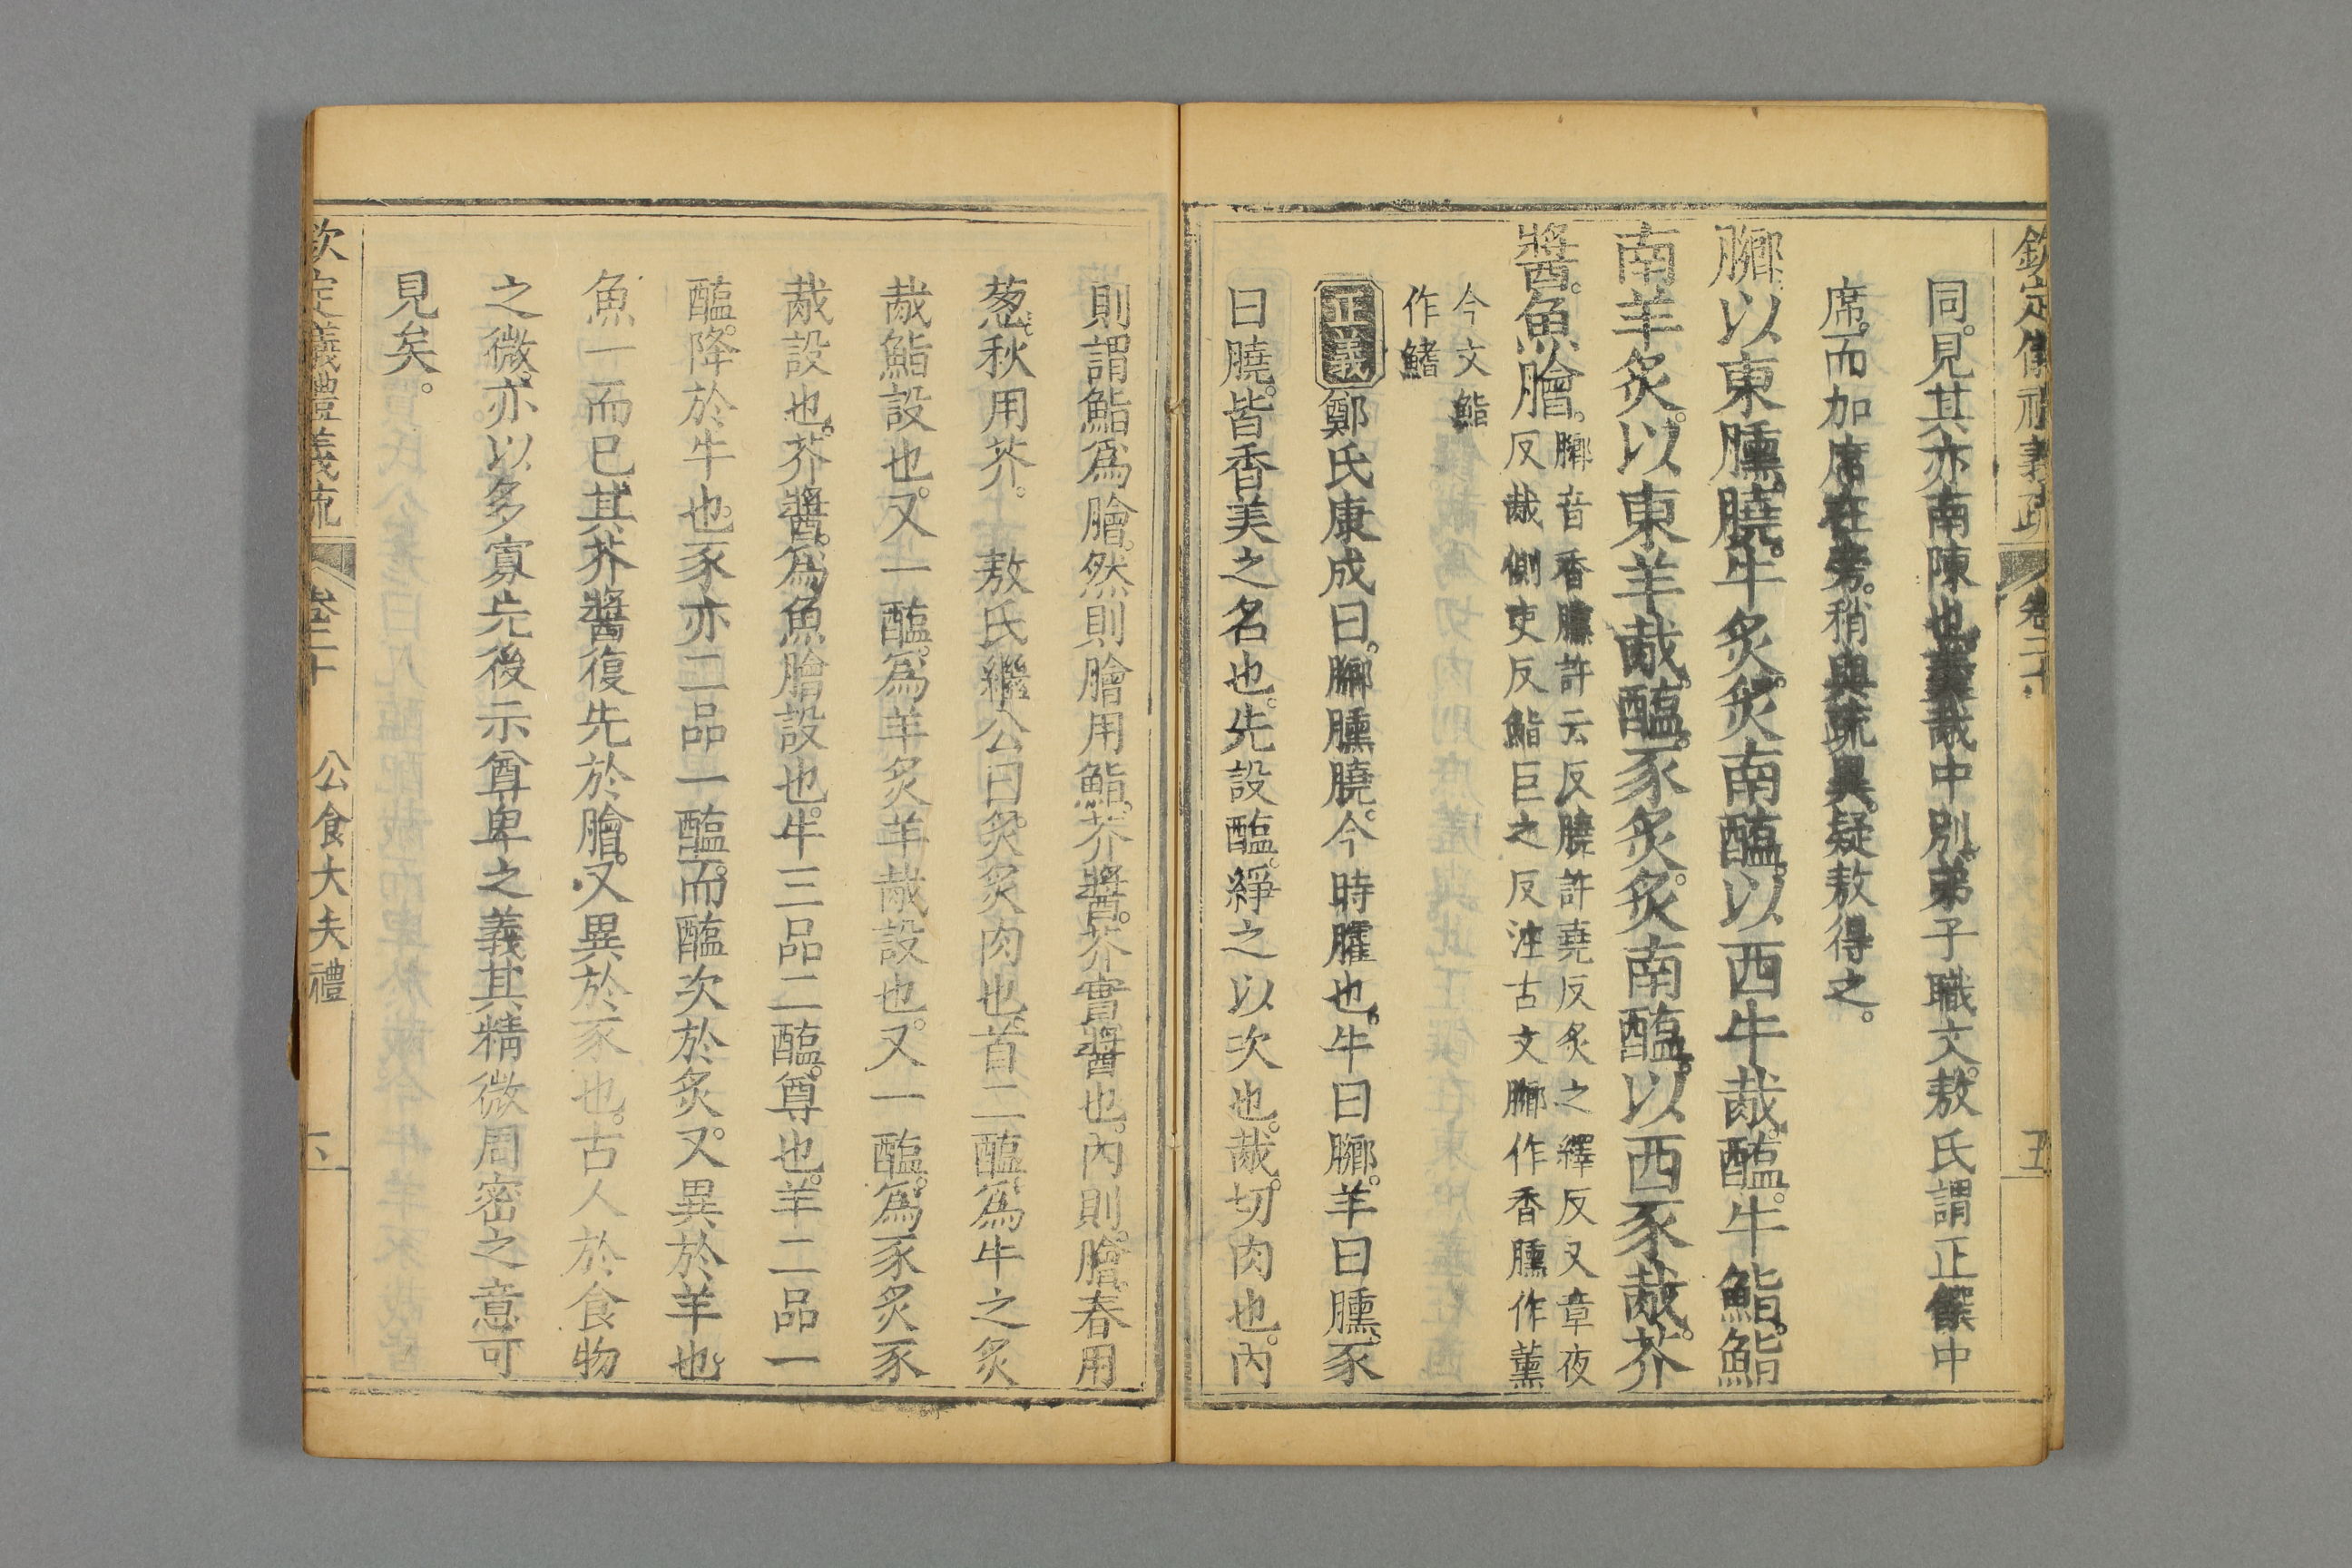 欽定儀禮義疏 卷二十 五
同。見其亦南陳也。羹胾中別。弟子職文。敖氏謂正饌中
席。而加席在旁。稍與疏異。疑敖得之。
膷以東臐膮。牛炙。炙南醢。以西牛胾。醢。牛鮨。鮨
南羊炙。以東羊胾。醢。豕炙。炙南醢。以西豕胾。芥
醬。魚膾。膷音香臐許云反膮許堯反炙之繹反又章夜
反胾側吏反鮨巨之反注古文膷作香臐作薰
今文鮨
作鰭
正義鄭氏康成曰。膷臐膮。今時臛也。牛曰膷。羊曰臐。豕
曰膮。皆香美之名也。先設醢。綪之以次也。胾。切肉也。內
則謂鮨爲膾。然則膾用鮨。芥醬。芥實醬也。內則。膾。春用
葱。秋用芥。 敖氏繼公曰。炙。炙肉也。首二醢。爲牛之炙
胾鮨設也。又一醢。爲羊炙羊胾設也。又一醢。爲豕炙豕
胾設也。芥醬。爲魚膾設也。牛三品二醢。尊也。羊二品一
醢。降於牛也。豕亦二品一醢。而醢次於炙。又異於羊也。
魚一而已。其芥醬復先於膾。又異於豕也。古人於食物
之微。亦以多寡先後示尊卑之義。其精微周密之意可
見矣。
欽定儀禮義疏 卷二十 公食大夫禮